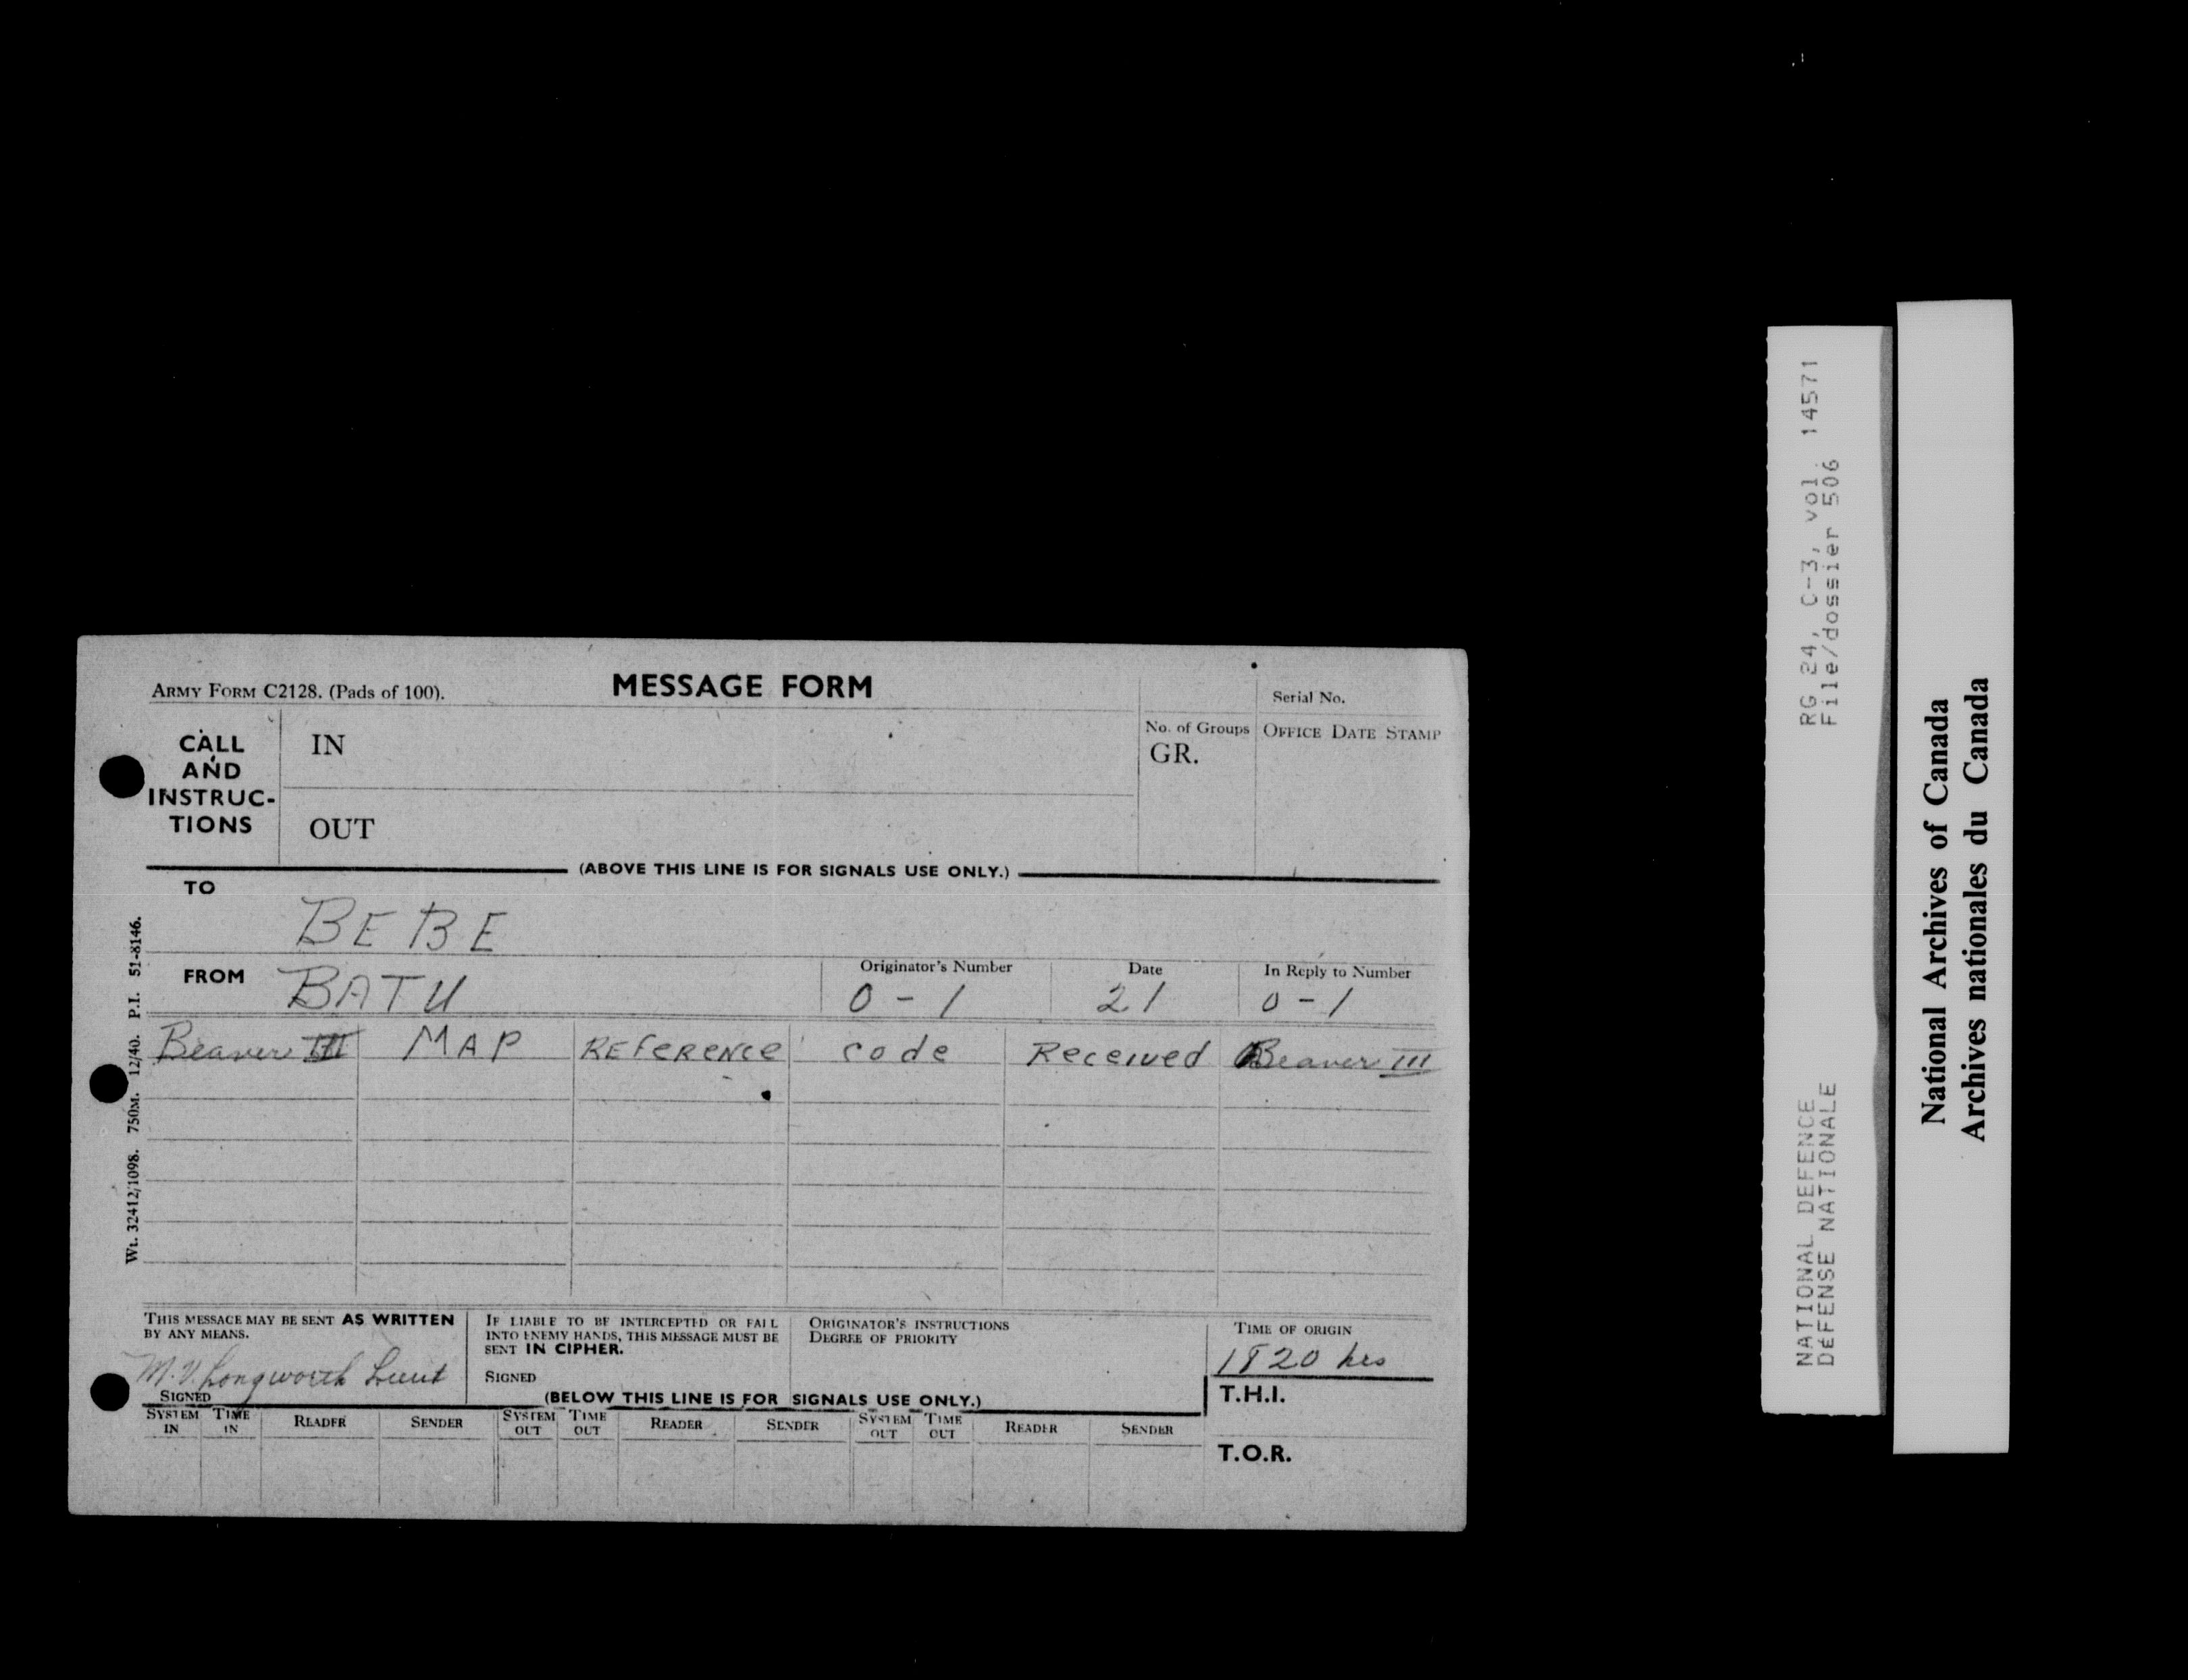 ARMY FORM C2128. (Pads of 100).
MESSAGE FORM
Serial No.
CALL
AND
INSTRUC-
TIONS
IN
OUT
No. of Groups
GR.
OFFICE DATE STAMP
(ABOVE THIS LINE IS FOR SIGNALS USE ONLY.)
TO
BEBE
FROM BATU
Originator's Number
0 - 1
Date
21
In Reply to Number
0 - 1
Beaver III MAP REFERENCE code Received Beaver III
Wt. 32412/1098. 750M. 12/40. P.I. 51-8146.
THIS MESSAGE MAY BE SENT AS WRITTEN
BY ANY MEANS.
M.V. Longworth Lieut
SIGNED
IF LIABLE TO BE INTERCEPTED OR FALL
INTO ENEMY HANDS, THIS MESSAGE MUST BE
SENT IN CIPHER.
SIGNED
ORIGINATOR'S INSTRUCTIONS
DEGREE OF PRIORITY
TIME OF ORIGIN
1820 hrs
(BELOW THIS LINE IS FOR SIGNALS USE ONLY.)
T.H.I.
T.O.R.
SYSTEM IN TIME IN READER SENDER SYSTEM OUT TIME OUT READER SENDER SYSTEM OUT TIME OUT READER SENDER
RG 24, C-3, vol. 14571
File/dossier 506
NATIONAL DEFENCE
DÉFENSE NATIONALE
National Archives of Canada
Archives nationales du Canada